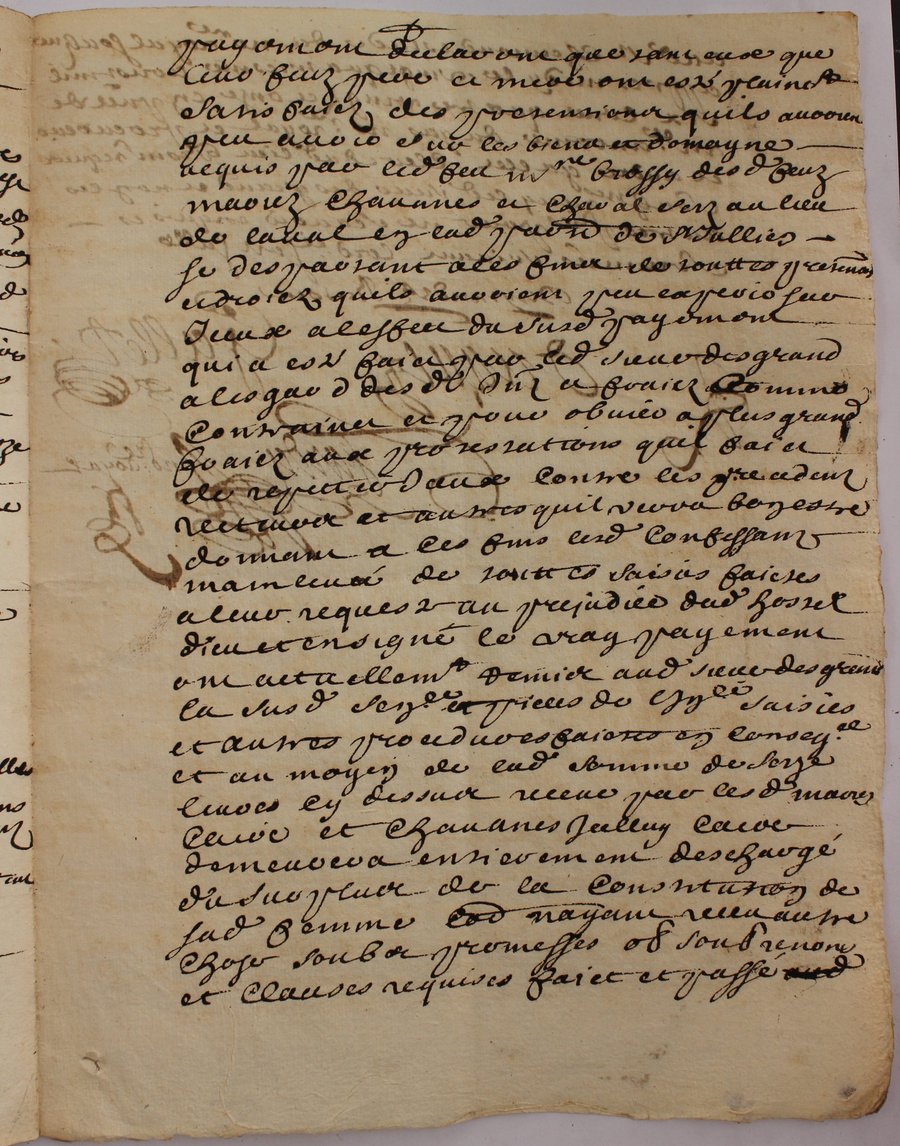 payement declarant que tant eux que
leur feuz pere et mere ont esté plainemt
satisfaictz des pretensions quils auroint
peu avoir sur les biens et domayne
acquis par led feu mre brossy des d feuz
mariez Chavanes et Chaval serz au lieu
de laval en lad parr de St Jullien
se despartant a ces fins de touttes pretentions
et droictz quils auroient peu expercir sur
Iceux a leffect du susd payement
qui a esté faict par led sieur desgrand
a lesgard des d Intz et fraictz comme
Contrainct et pour obvier a plus grand
fraictz aux protestations quil faict
de repetter Iceux contre les precedent
recteurs et autres quil verra bon estre
donnant a ces fins lesd confessantz
mainlevée de touttes saisies faictes
a leur requeste au prejudice dud hostel
dieu et ensigné le vray payement
ont actuellemt remis aud sieur desgrand
la susd et pieces de saisies
et autres procedures faictes en conseq
et au moyen de lad somme de seize
livres cy dessus receue par lesd mariez
Claire et Chavanes Jullny Claire
demeurera entierement deschargé
du surplus de la constitution de
sad femme nayant receu autre
chose soubz promesses ob soub renon
et clauses requises faict et passé